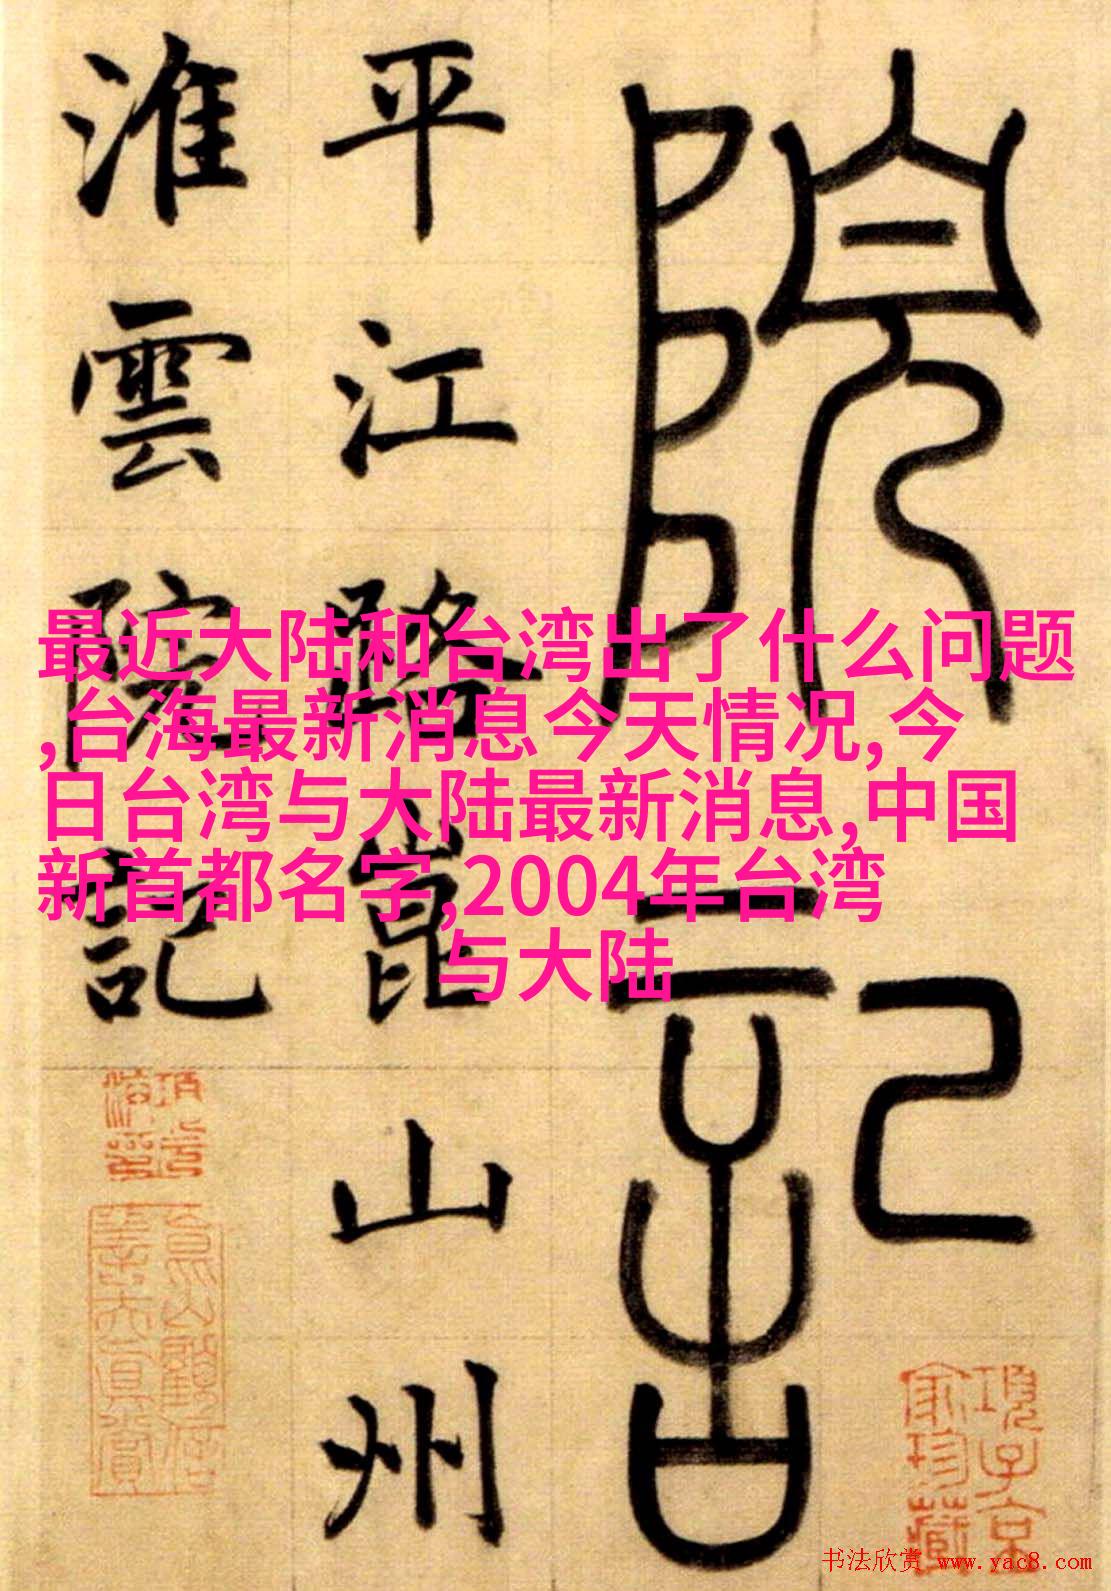 院記
平江路崑山州
淮雲院記
最近大陆和台湾出了什么问题
,台海最新消息今天情况,今
日台湾与大陆最新消息,中国
新首都名字,2004年台湾
与大陆
項子京
家珍藏
书法欣赏 www.yac8.com